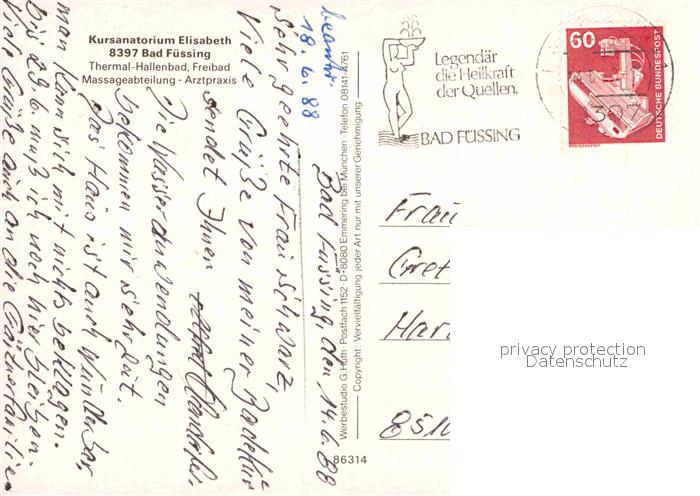 Kursanatorium Elisabeth
8397 Bad Füssing
Thermal-Hallenbad, Freibad
Massageabteilung - Arztpraxis
beantw.
18.6.88
Bad Füssing, den 14.6.88
Sehr geehrte Frau Schwarz,
Viele Grüße von meiner Badekur
sendet Ihnen
Die Wasseranwendungen
bekommen mir sehr gut.
Das Haus ist auch wunderbar,
man kann sich mit nichts beklagen.
Bis 29.6 muß ich noch hier bleiben.
Viele Grüße auch an die Gärtnerfamilie
Werbestudio G. Huth · Postfach 1152 · D-8080 Emmering bei München · Telefon 08141-4761
Copyright: Vervielfältigung jeder Art nur mit unserer Genehmigung
86314
Legendär
die Heilkraft
der Quellen.
BAD FÜSSING
60
DEUTSCHE BUNDESPOST
RÖNTGENGERÄT
Frau
Gret
Har
8510
privacy protection
Datenschutz